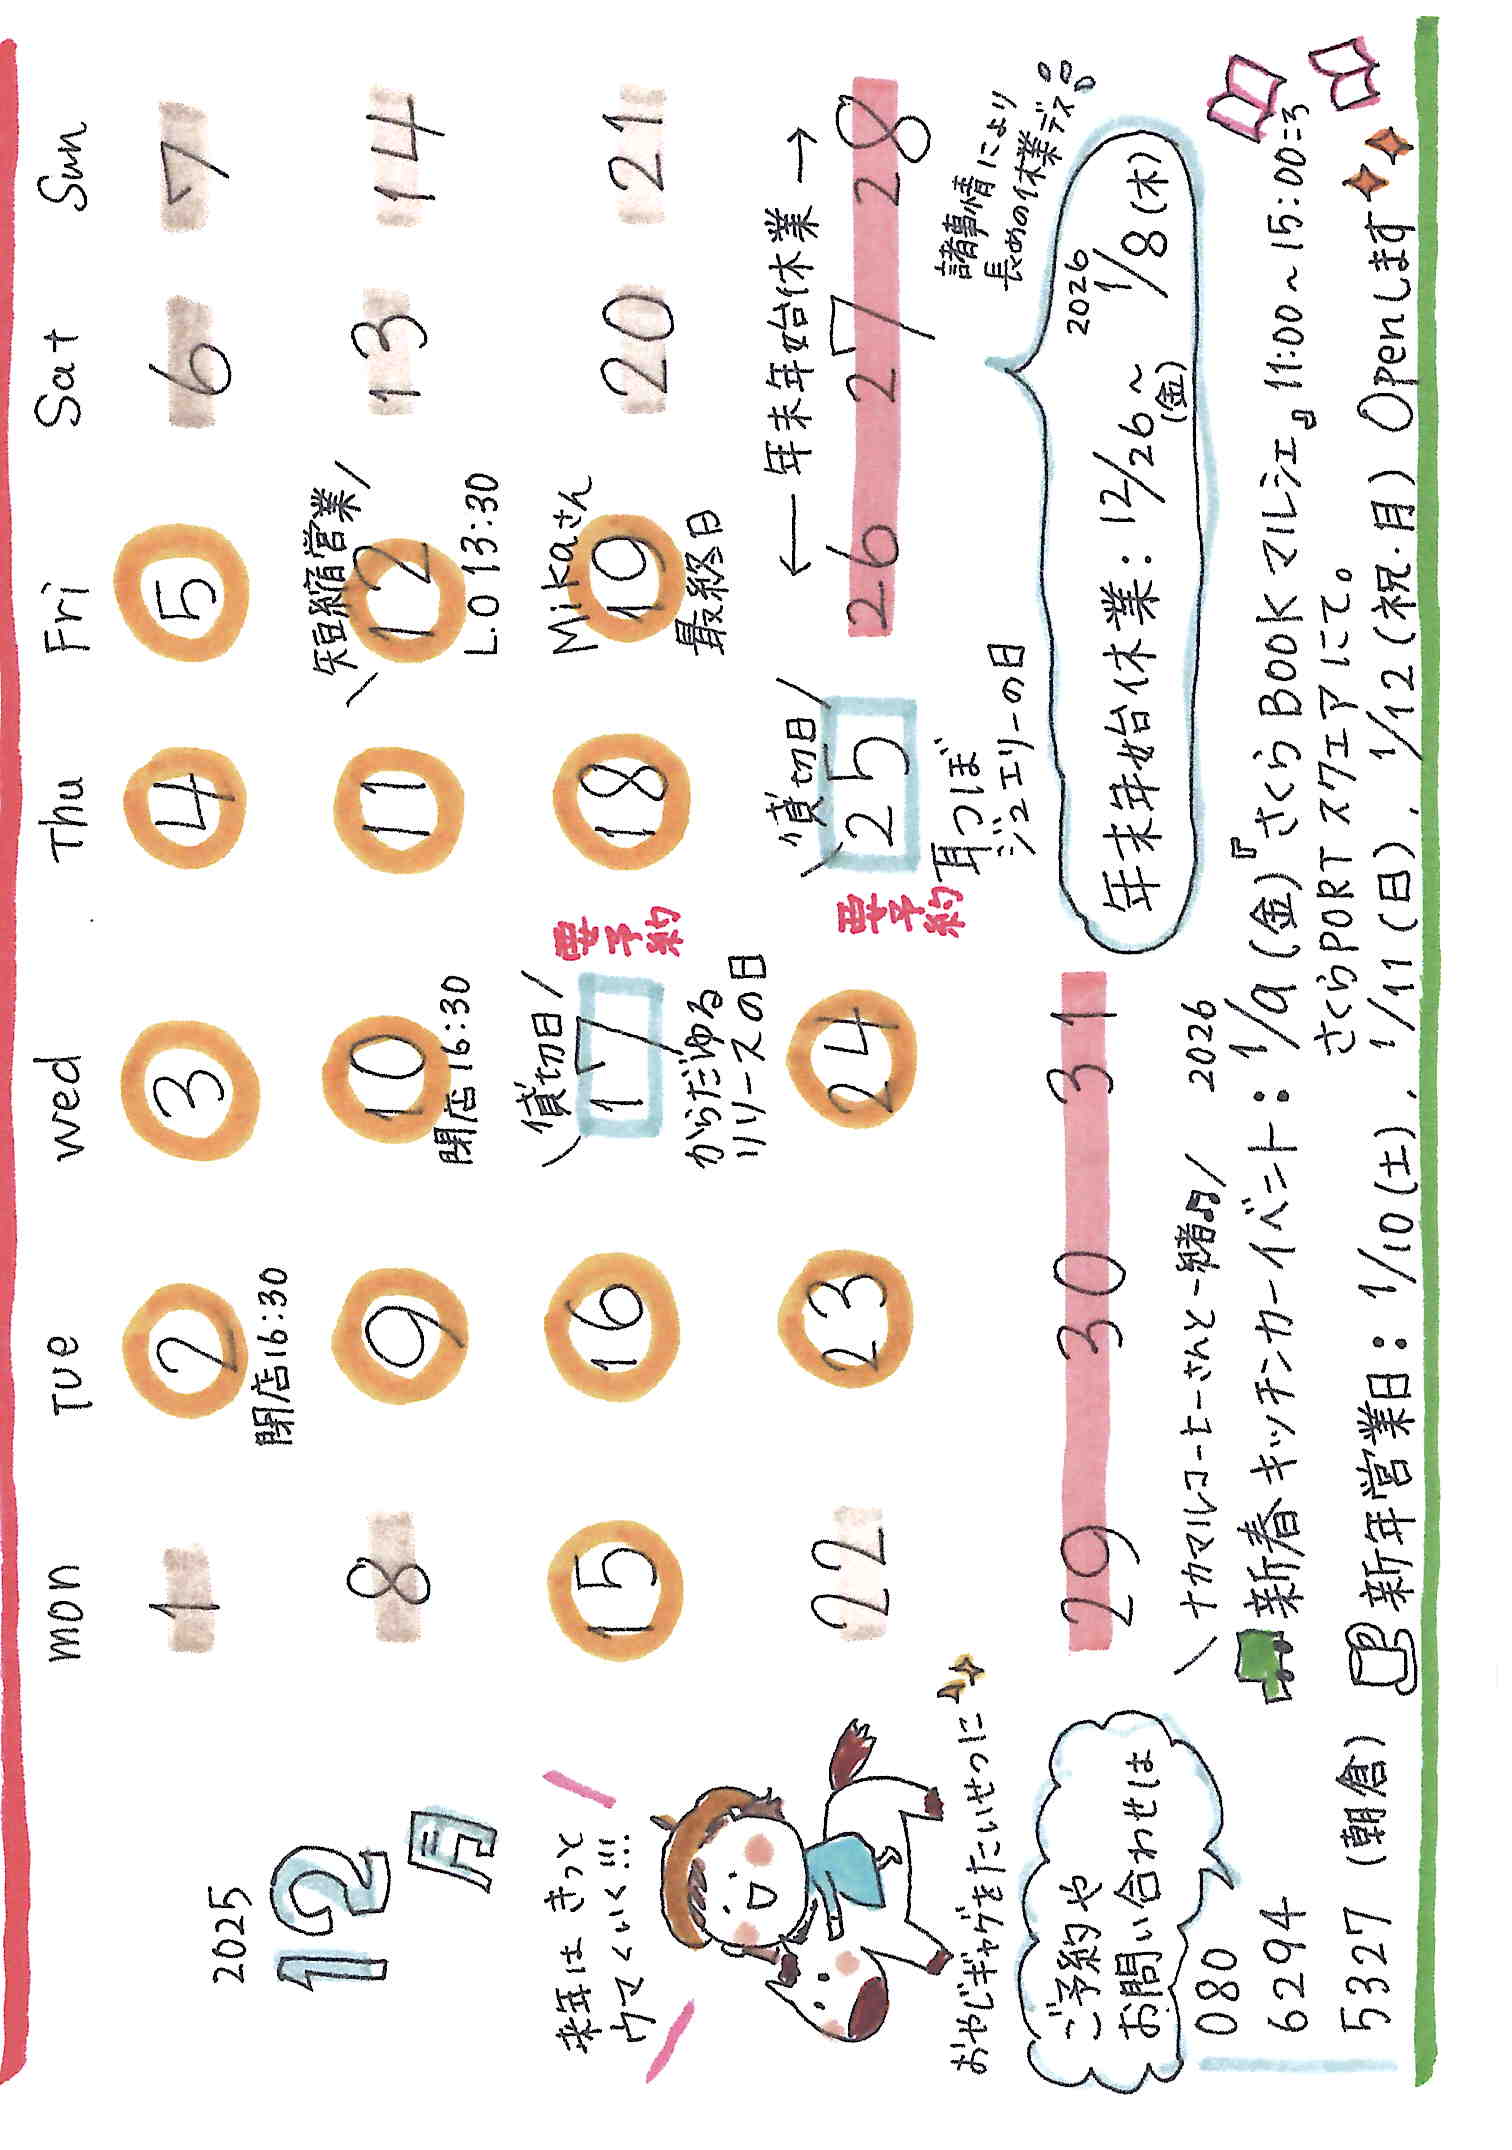 2025
12
月
mon Tue wed Thu Fri Sat Sun
1 2 3 4 5 6 7
閉店16:30
\ 短縮営業 /
8 9 10 11 12 13 14
閉店16:30
L.O 13:30
\ 貸切日 /
要予約
Mikaさん
15 16 17 18 19 20 21
からだゆる
リリースの日
最終日
\ 貸切日 /
← 年末年始休業 →
22 23 24 25 26 27 28
要予約
耳つぼ
ジュエリーの日
29 30 31
諸事情により
長めの休業デス
年末年始休業:12/26(金)~ 2026 1/8(木)
来年は きっと
ウマくいく!!!
おやじギャグをたいせつに
ご予約や
お問い合わせは
080
6294
5327 (朝倉)
\ ナカマルコーヒーさんと一緒♫ /
2026
新春キッチンカーイベント:1/9(金)『さくらBOOKマルシェ』11:00~15:00
さくらPORTスクエアにて。
新年営業日:1/10(土)、1/11(日)、1/12(祝・月) Openします